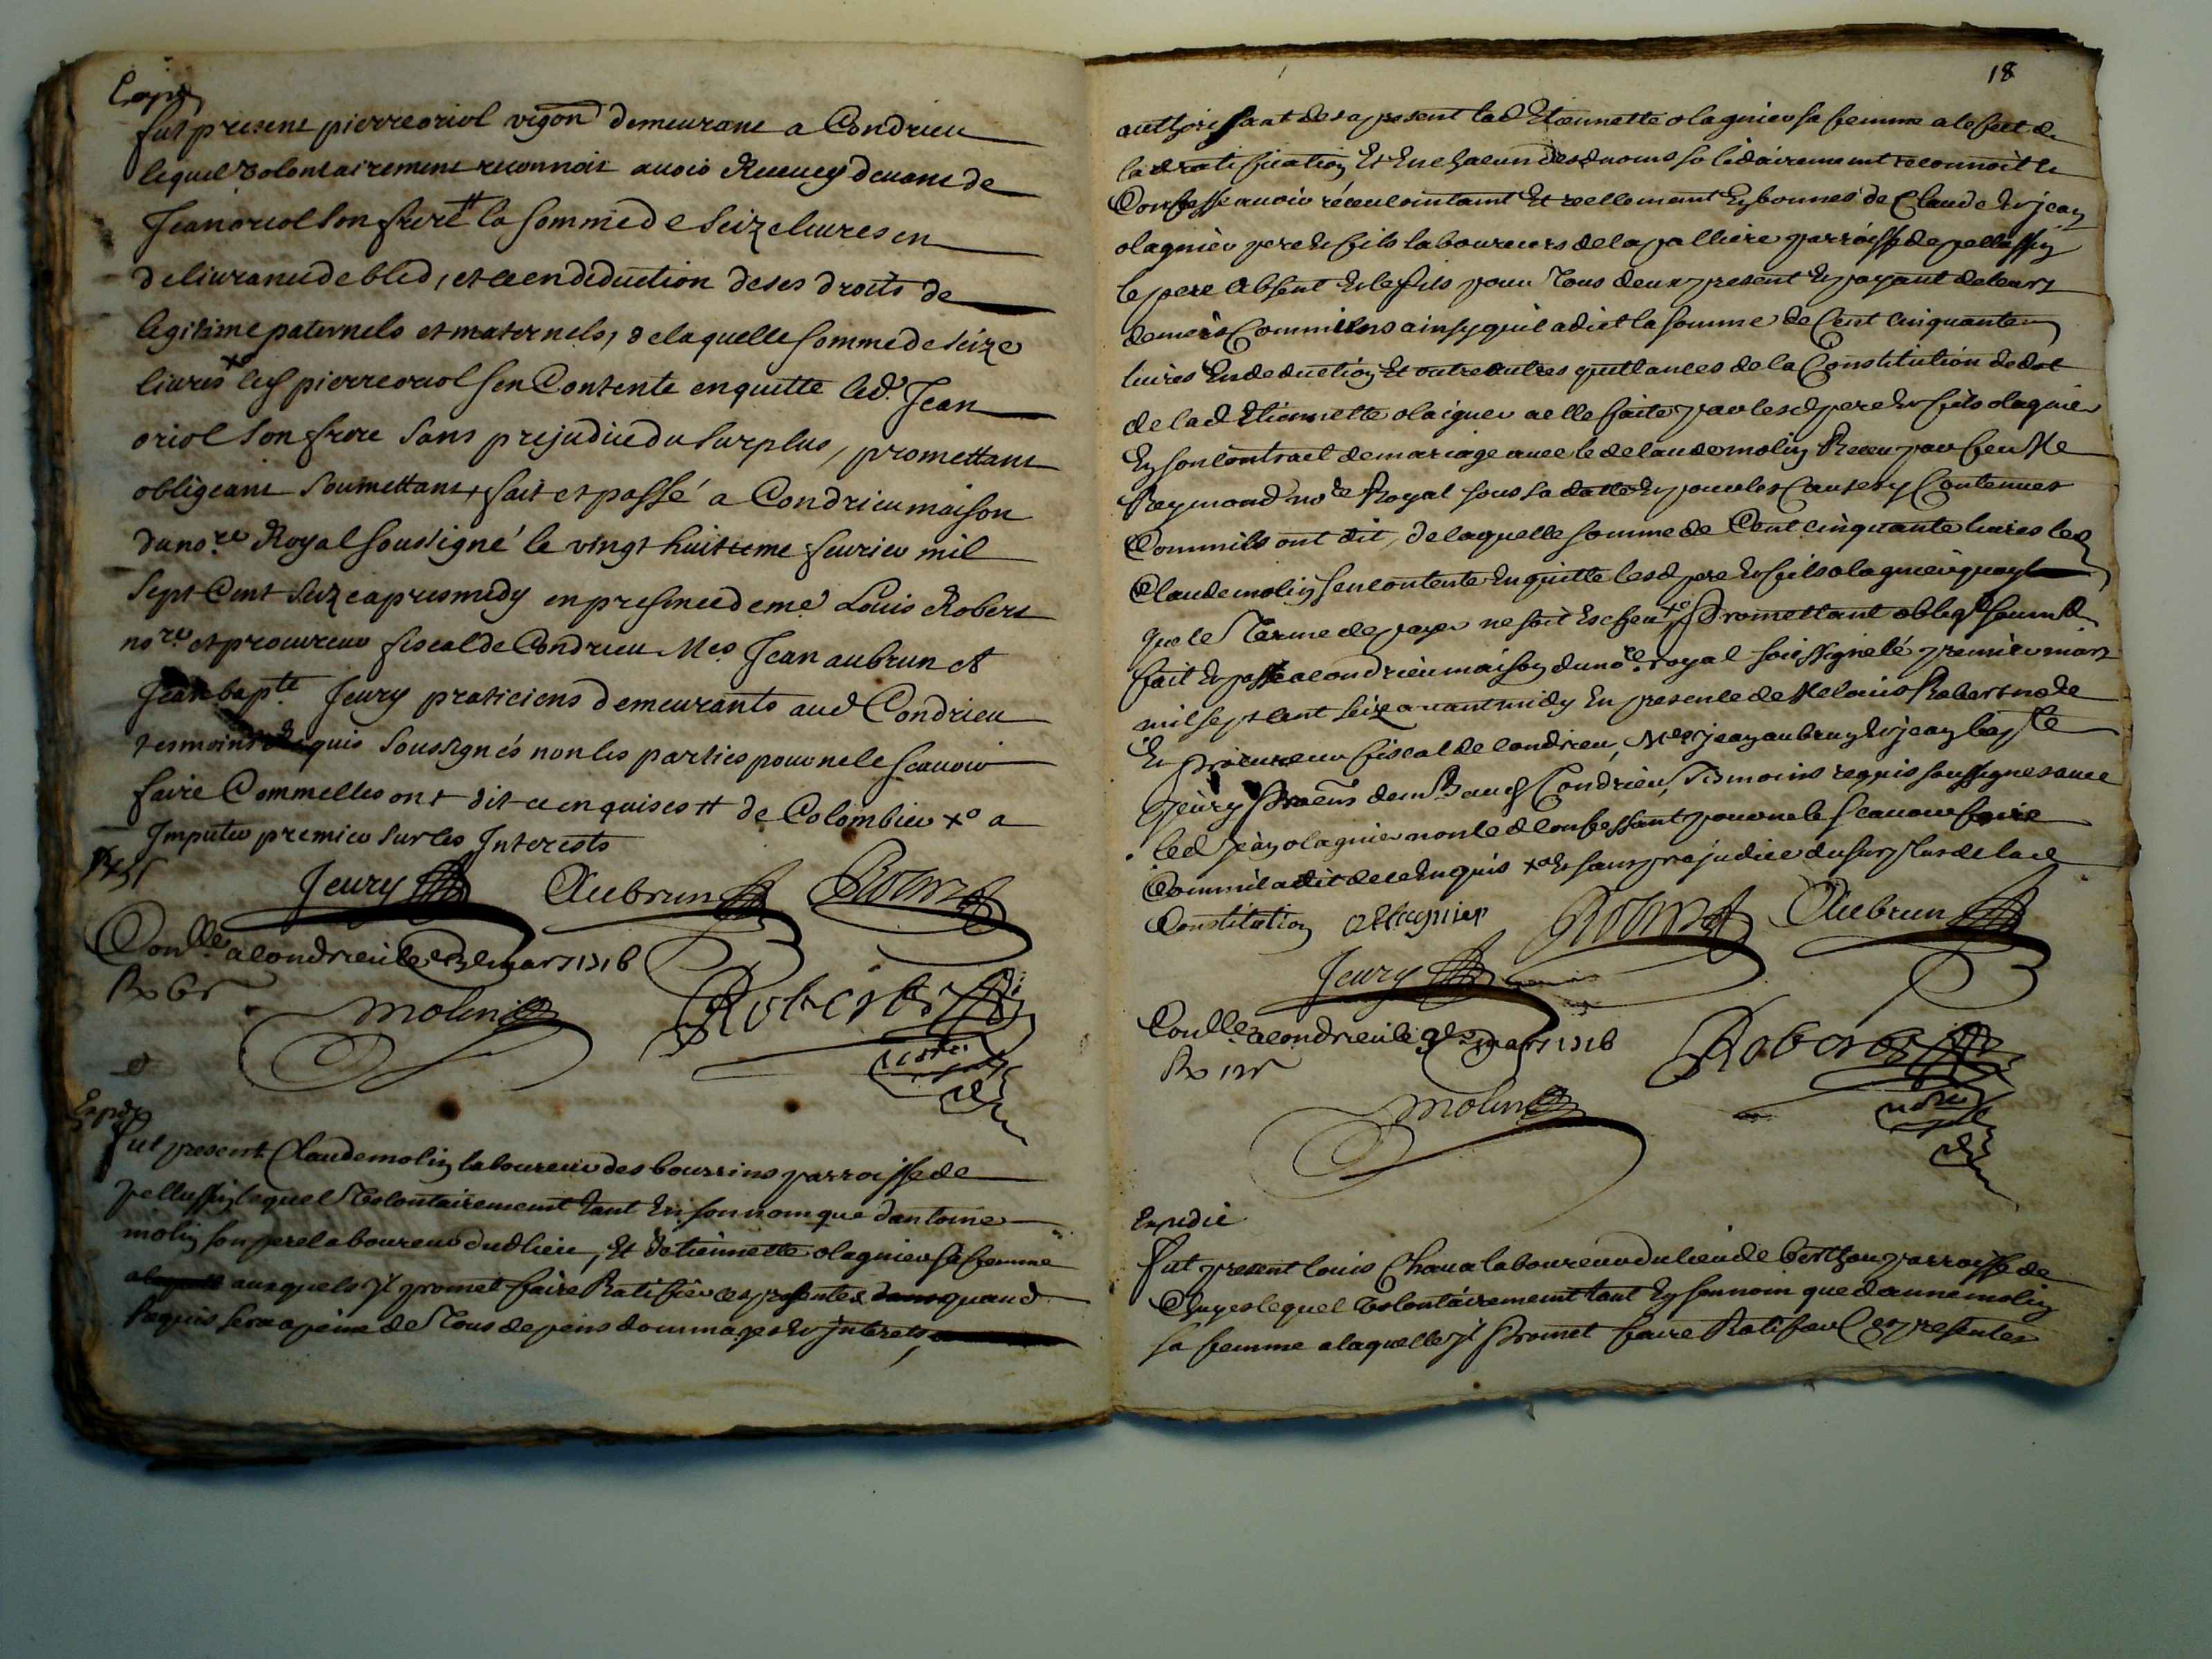 Expe
fut present pierre oriol vigon demeurant a Condrieu
lequel volontairement reconnoit avoir Receu cy devant de
Jean oriol son frere # la somme de seize livres en
delivrance de bled, et ce en deduction de ses droits de
legitime paternels et maternels, de laquelle somme de seize
livres x° led pierre oriol sen Contente en quitte led. Jean
oriol son frere sans prejudice du surplus, promettant
obligeant soumettant, fait et passé a Condrieu maison
du no.re Royal soussigné le vingt huitieme fevrier mil
sept Cent seize apres midy en presence de me Louis Robert
no.re et procureur fiscal de Condrieu Mes Jean aubrun et
Jean bapte. Jeury praticiens demeurants aud Condrieu
tesmoins requis soussignés non les parties pour ne le scavoir
faire Comme elles ont dit ce enquises # de Colombier x° a
Imputer premier sur les Interests
Jeury Aubrun Robert
Conlle. a Condrieu le mars 1716
Molin Robert
nore
Expe
fut present Claude molin laboureur des bourrins parroisse de
pellussin lequel volontairement tant en son nom que dantoine
molin son pere laboureur dud lieu, et detiennette olagnier sa femme
ausquels Jl promet faire Ratifier ces presentes quand
Requis sera a peine de tous depens dommages et jnterets
18
authorisant des a present lad Etiennette olagnier sa femme a lefect de
lad ratification Et en chacun desd noms solidairement reconnoit et
Confesse avoir receu contant et reellement de Claude et jean
olagnier pere et fils laboureurs de la valliere parroisse de pellussin
le pere absent et le fils pour tous deux present et payant de leurs
deniers Communs ainsy quil a dict la somme de Cent Cinquante
livres En deduction et outre autres quittances de la Constitution de dot
de lad Etiennette olagnier a elle faite par lesd pere et fils olagnier
En son contract de mariage avec led claude molin Receu par feu Me
Reymond no.re Royal sous sa datte et pour les Causes y Contenues
Comm'ils ont dit, de laquelle somme de Cent cinquante livres led
Claude molin sen contente En quitte lesd pere et fils olagnier quoy
que le Terme de payer ne soit Escheu x° Promettant obligt soumt
fait et passé a Condrieu maison du no.re royal soussigné le premier mars
mil sept cent seize avant midy En presence de Me louis Robert no.re
Et Procureur fiscal de Condrieu, Mes jean aubrun et jean bapte
Jeury Praens demts aud Condrieu, Tesmoins requis soussignes avec
led jean olagnier non led Confessant pour ne le scavoir faire
Comm'il a dit de ce Enquis x° Et sans prejudice du surplus de lad
Constitution Ollagnier Robert Aubrun
Jeury
Conlle. a Condrieu le 9e mars 1716
Molin Robert
nore
Expedié
fut present louis Chava laboureur du lieu de berthou parroisse de
Chuyes lequel volontairement tant En son nom que danne molin
sa femme a laquelle jl Promet faire Ratifier Ces presentes